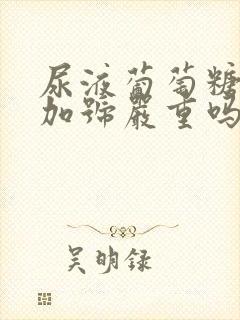 尿液葡萄糖
加號嚴重嗎
吴明録